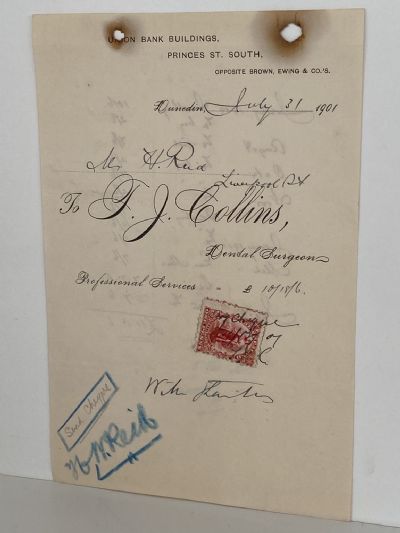 UNION BANK BUILDINGS,
PRINCES ST. SOUTH,
OPPOSITE BROWN, EWING & CO.'S.
Dunedin, July 31 1901
M H. Reid
Liverpool St
To T. J. Collins,
Dental Surgeon
Professional Services £ 10/18/6.
By Cheque
With Thanks
Send Cheque
W. Reid